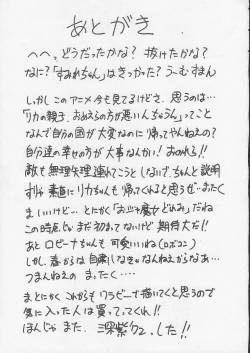 あとがき
へへ。どうだったかな？ 抜けたかな？
なに？「すみれちゃん」はきつかった？ うーむすまん
しかしこのアニメ今も見てるけどさ、思うのは…
「リカの親子、おめえらの方が悪いんちゃう」ってこと
なんで自分の国が大変なのに帰ってやんねえの？
自分達の幸せの方が大事なんかい！おのれら!!
敵も無理矢理連れてこうとしないで、ちゃんと説明
すりゃ素直にリカちんも帰ってくれると思うぜ…まったく
まいいけど…とにかく「おジャ魔女どれみ」だね
この時点じゃまだ初まってないけど期待だ!!
あとロビーナちゃんも可愛いいね（ロボコン）
しかし、春からは自粛しなきゃなんねえからなあ…
つまんねえの。まったく…
まとにかくこれからもワラビーで描いてくと思うので
気に入った人は買ってってくれ!!
ほんじゃまた。深紫でした!!